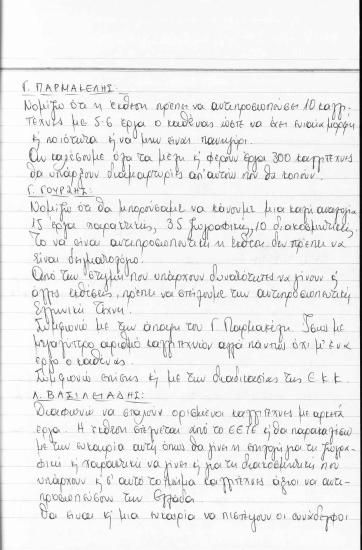 Γ. ΠΑΡΜΑΚΕΛΗΣ:
Νομίζω ότι η έκθεση πρέπει να αντιπροσωπεύσει 10 καλλι-
τέχνες με 5-6 έργα ο καθένας ώστε να έχει ενιαία μορφή
ή ποιότητα ή να μην είναι πανηγύρι.
Αν καλέσουμε όλα τα μέλη ή φέρουν έργα 300 καλλιτέχνες
θα υπάρξουν διαμαρτυρίες απ' αυτούς που θα κοπούν.
Γ. ΓΟΥΡΖΗΣ:
Νομίζω ότι θα μπορούσαμε να κάνουμε μια καλή αναλογία
15 έργα χαρακτικής, 35 ζωγραφικής, 10 διακοσμητικής.
Το να είναι αντιπροσωπευτική η έκθεση δεν πρέπει να
είναι δειγματολόγιο.
Από την στιγμή που υπάρχουν δυνατότητες να γίνουν ή
άλλες εκθέσεις, πρέπει να στείλουμε την αντιπροσωπευτική
Ελληνική Τέχνη.
Συμφωνώ με την άποψη του Γ. Παρμακέλη. Ίσως με
μεγαλύτερο αριθμό καλλιτεχνών αλλά πάντως όχι μ' ένα
έργο ο καθένας.
Συμφωνώ επίσης ή με την διαδικασία της Ε.Κ.Κ.
Λ. ΒΑΣΙΛΕΙΑΔΗΣ:
Διαφωνώ να σταλούν ορισμένοι καλλιτέχνες με αρκετά
έργα. Η έκθεση στέλνεται από το ΕΕΤΕ ή θα παρακαλέσω
με την ευκαιρία αυτή όπως θα γίνει η επιλογή για τη ζωγρα-
φική ή χαρακτική να γίνει ή για τη διακοσμητική που
υπάρχουν ή σ' αυτό το τμήμα καλλιτέχνες άξιοι να αντι-
προσωπεύσουν την Ελλάδα.
Θα είναι ή μια ευκαιρία να πιστέψουν οι συνάδελφοι